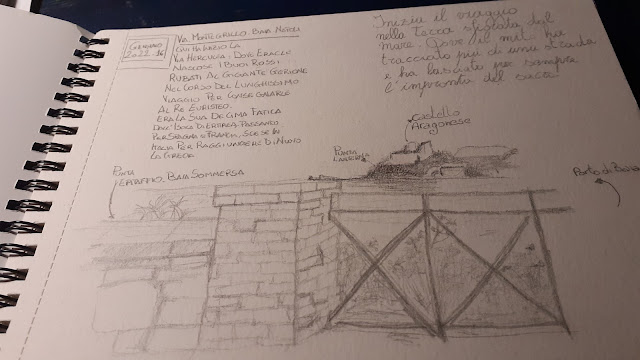 Gennaio
2022. 16
Via Montegrillo Baia Napoli
Qui Ha Inizio La
Via Herculea: Dove Eracle
Nascose I Buoi Rossi
Rubati Al Gigante Gerione
Nel Corso Del Lunghissimo
Viaggio Per Consegnarle
Al Re Euristeo.
Era La Sua Decima Fatica
Dall'Isola Di Eritrea Passando
Per Spagna e Francia, Scese In
Italia Per Raggiungere Di Nuovo
La Grecia
Inizia il viaggio
nella terra sfiorata dal
mare. Dove il mito ha
tracciato più di una strada
e ha lasciato per sempre
l'impronta del sacro
Castello
Aragonese
Punta
Lanterna
Porto di Baia
Punta
Epitaffio, Baia Sommersa